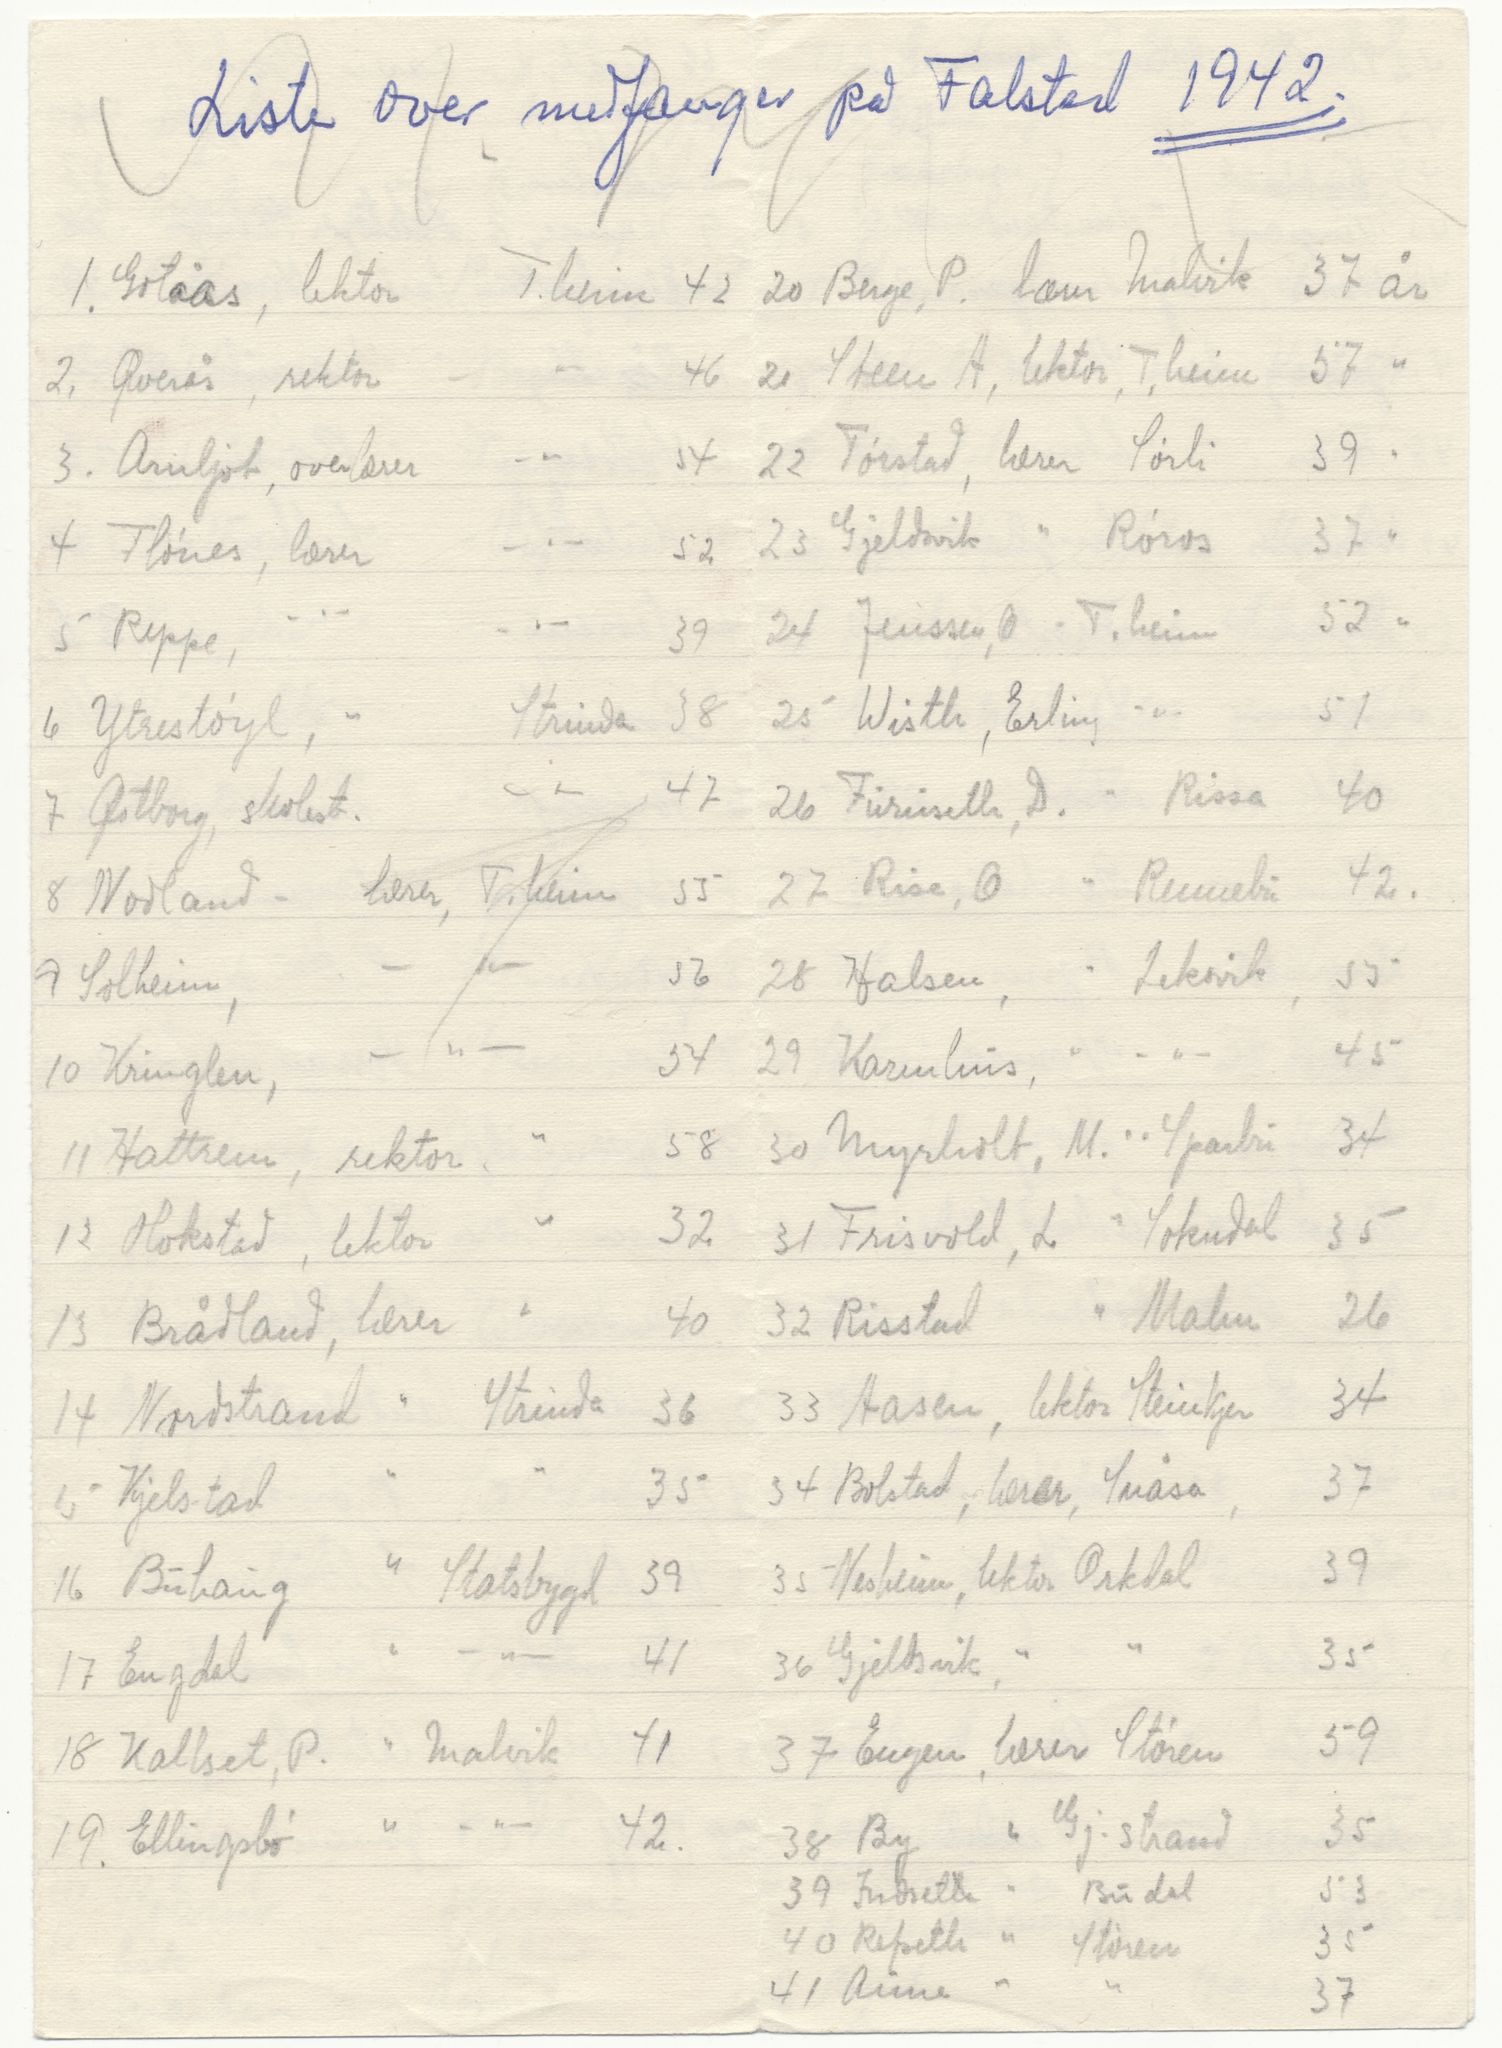 Liste over medfanger på Falstad 1942.
1. Gotåas, lektor T.heim 42
2. Øverås, rektor - " 46
3. Arnljot, overlærer - " - 54
4 Flönes, lærer - " - 52
5 Reppe, - " - - " - 39
6 Ytrestöyl, " Strinda 38
7 Østborg, skolest. - " - 47
8 Nodland - lærer, T.heim 55
9 Solheim, - " - 56
10 Kringlen, - " - 54
11 Hattrem, rektor. " 58
12 Hokstad, lektor " 32
13 Brådland, lærer " 40
14 Nordstrand " Strinda 36
15 Kjelstad " " 35
16 Buhaug " Statsbygd 39
17 Engdal " - " - 41
18 Kallset, P. " Malvik 41
19. Ellingsbö " - " - 42.
20 Berge, P. lærer Malvik 37 år
21 Steen A, lektor, T.heim 57 "
22 Törstad, lærer Sörli 39 "
23 Gjeldsvik " Röros 37 "
24 Jenssen, O - T.heim 52 "
25 Wisth, Erling - " - 51
26 Furuseth, D. " Rissa 40
27 Rise, O " Rennebu 42.
28 Halsen, " Leksvik, 55
29 Karenhus, " - " - 45
30 Myrholt, M. " Sparbu 34
31 Frisvold, L " Soknedal 35
32 Risstad " Malm 26
33 Aasen, lektor Steinkjer 34
34 Bolstad, lærer, Snåsa, 37
35 Nesheim, lektor Orkdal 39
36 Gjeldsvik, " " 35
37 Engen, lærer Stören 59
38 By " Gj.strand 35
39 Indseth " Budal 53
40 Refseth " Stören 35
41 Aune " " 37